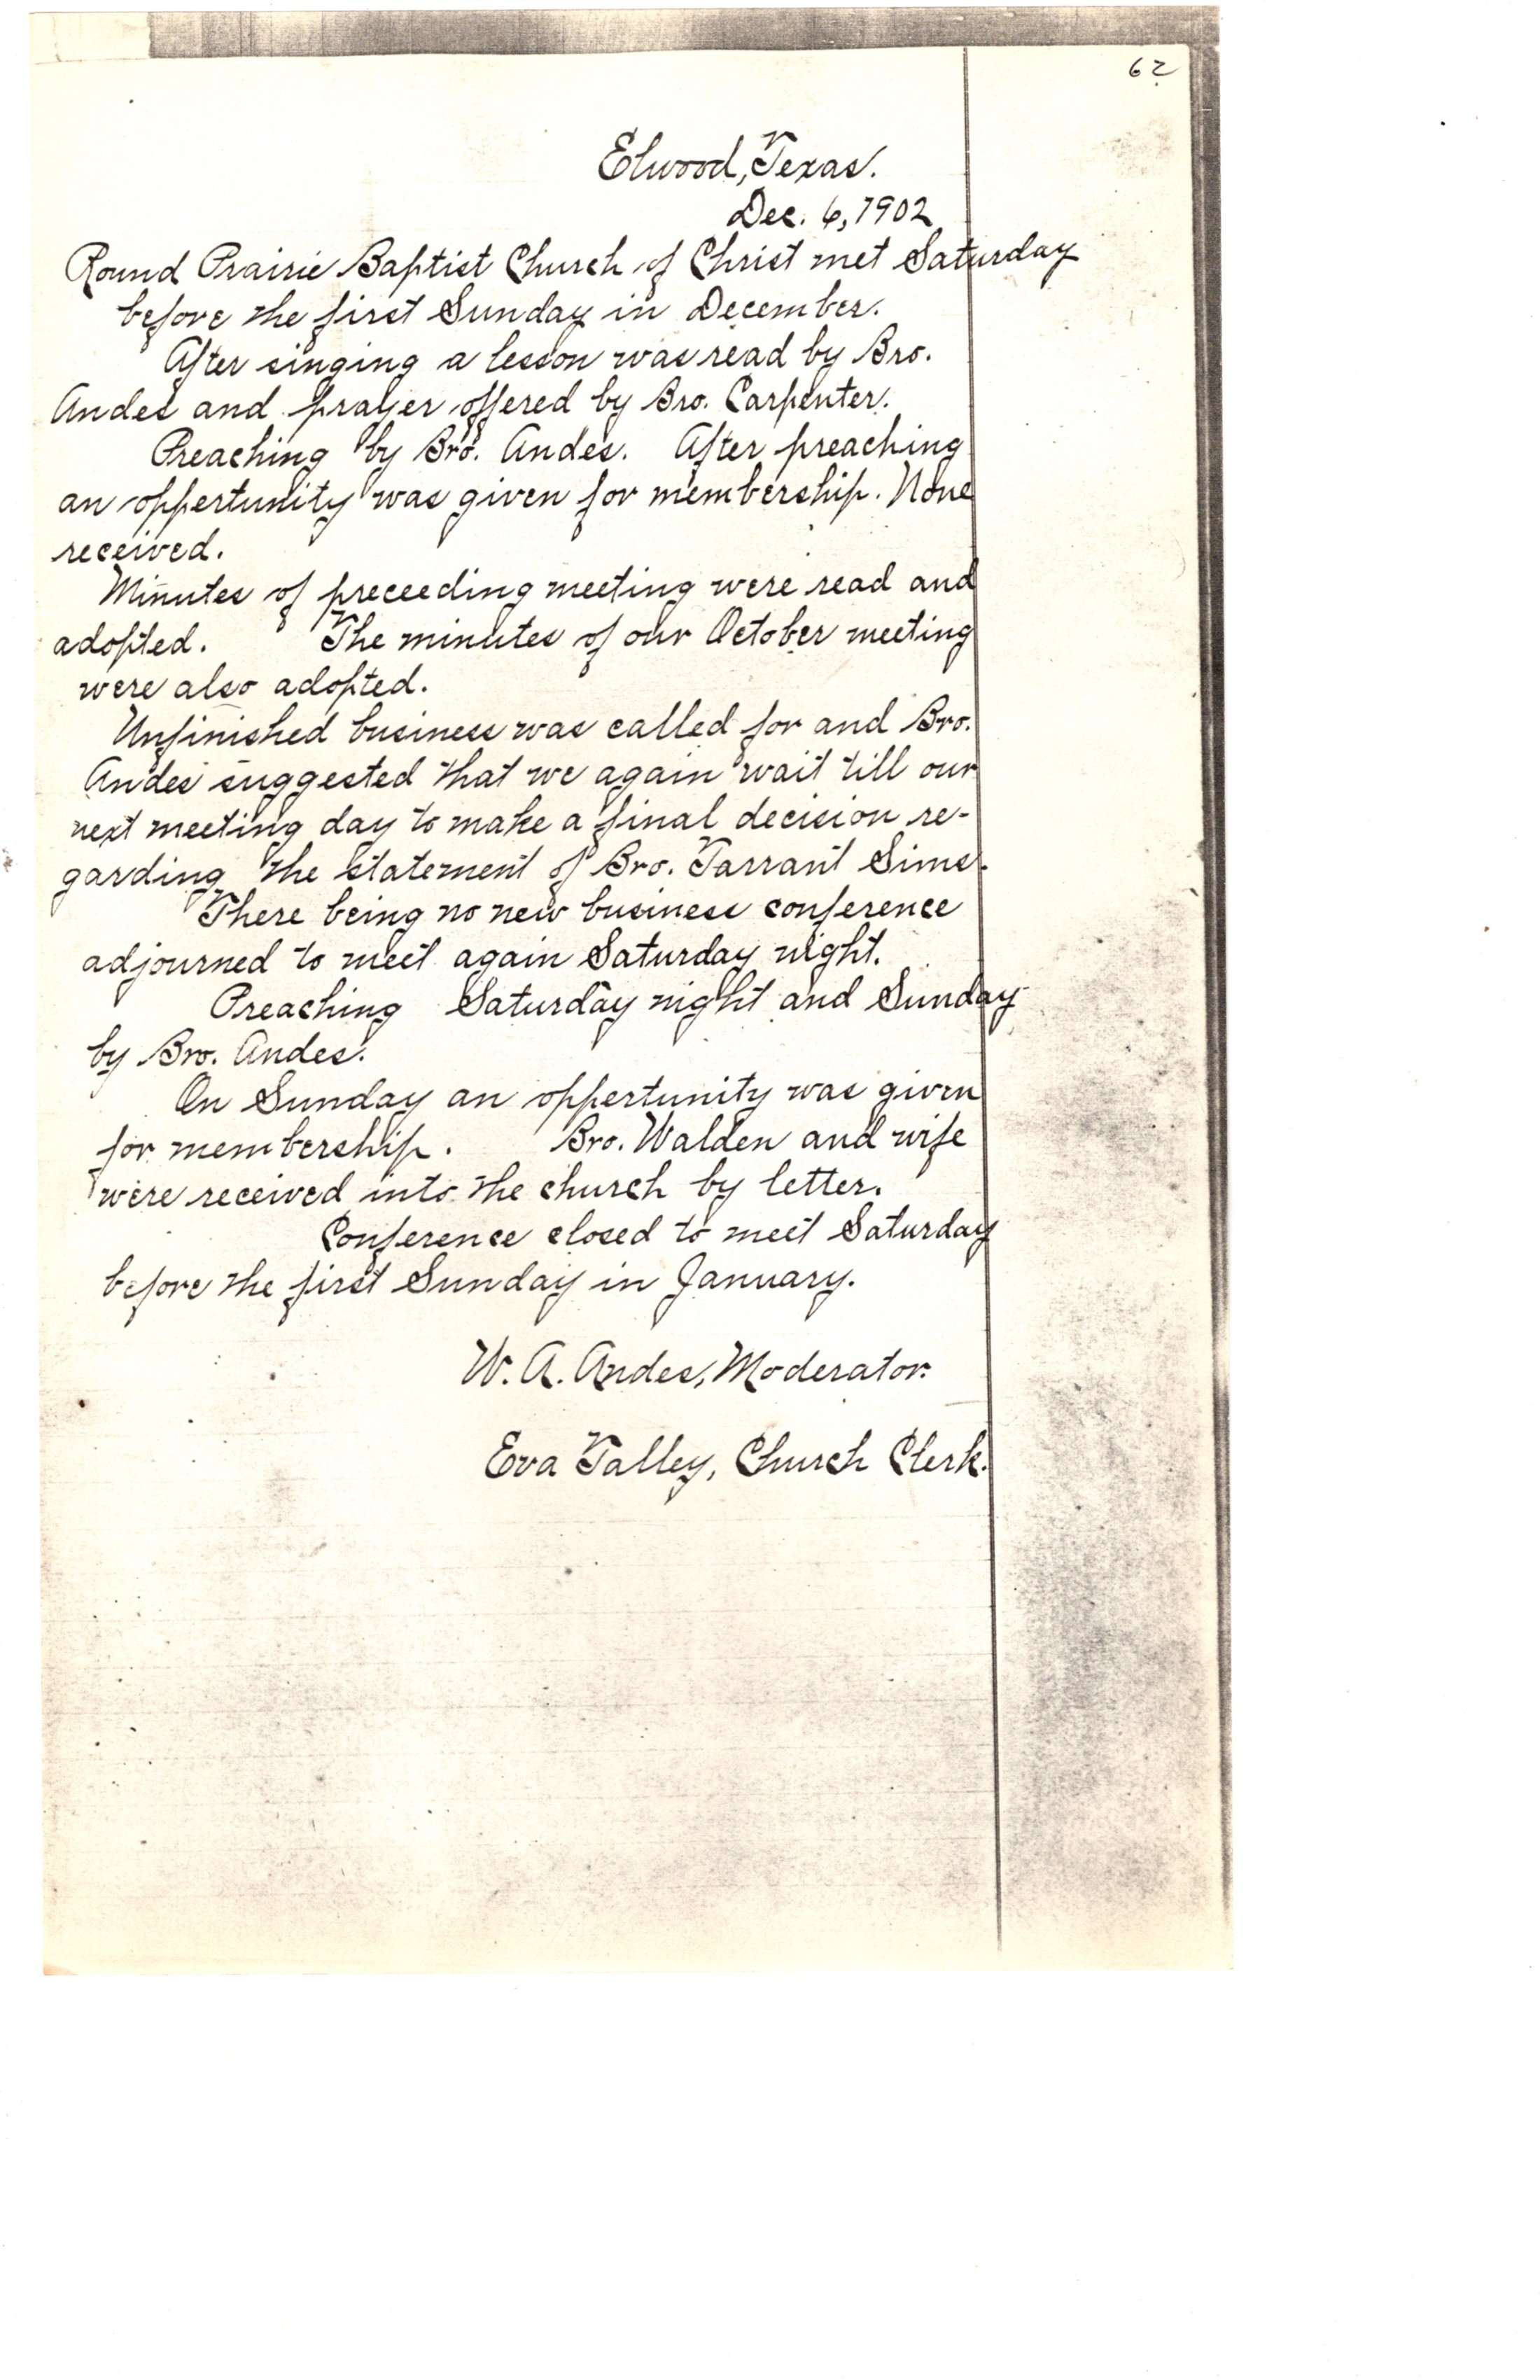 62
Elwood, Texas.
Dec. 6, 1902
Round Prairie Baptist Church of Christ met Saturday
before the first Sunday in December.
After singing a lesson was read by Bro.
Andes and prayer offered by Bro. Carpenter.
Preaching by Bro. Andes. After preaching
an oppertunity was given for membership. None
received.
Minutes of preceeding meeting were read and
adopted. The minutes of our October meeting
were also adopted.
Unfinished business was called for and Bro.
Andes suggested that we again wait till our
next meeting day to make a final decision re-
garding the statement of Bro. Tarrant Sims.
There being no new business conference
adjourned to meet again Saturday night.
Preaching Saturday night and Sunday
by Bro. Andes.
On Sunday an oppertunity was given
for membership. Bro. Walden and wife
were received into the church by letter.
Conference closed to meet Saturday
before the first Sunday in January.
W. A. Andes, Moderator.
Eva Talley, Church Clerk.